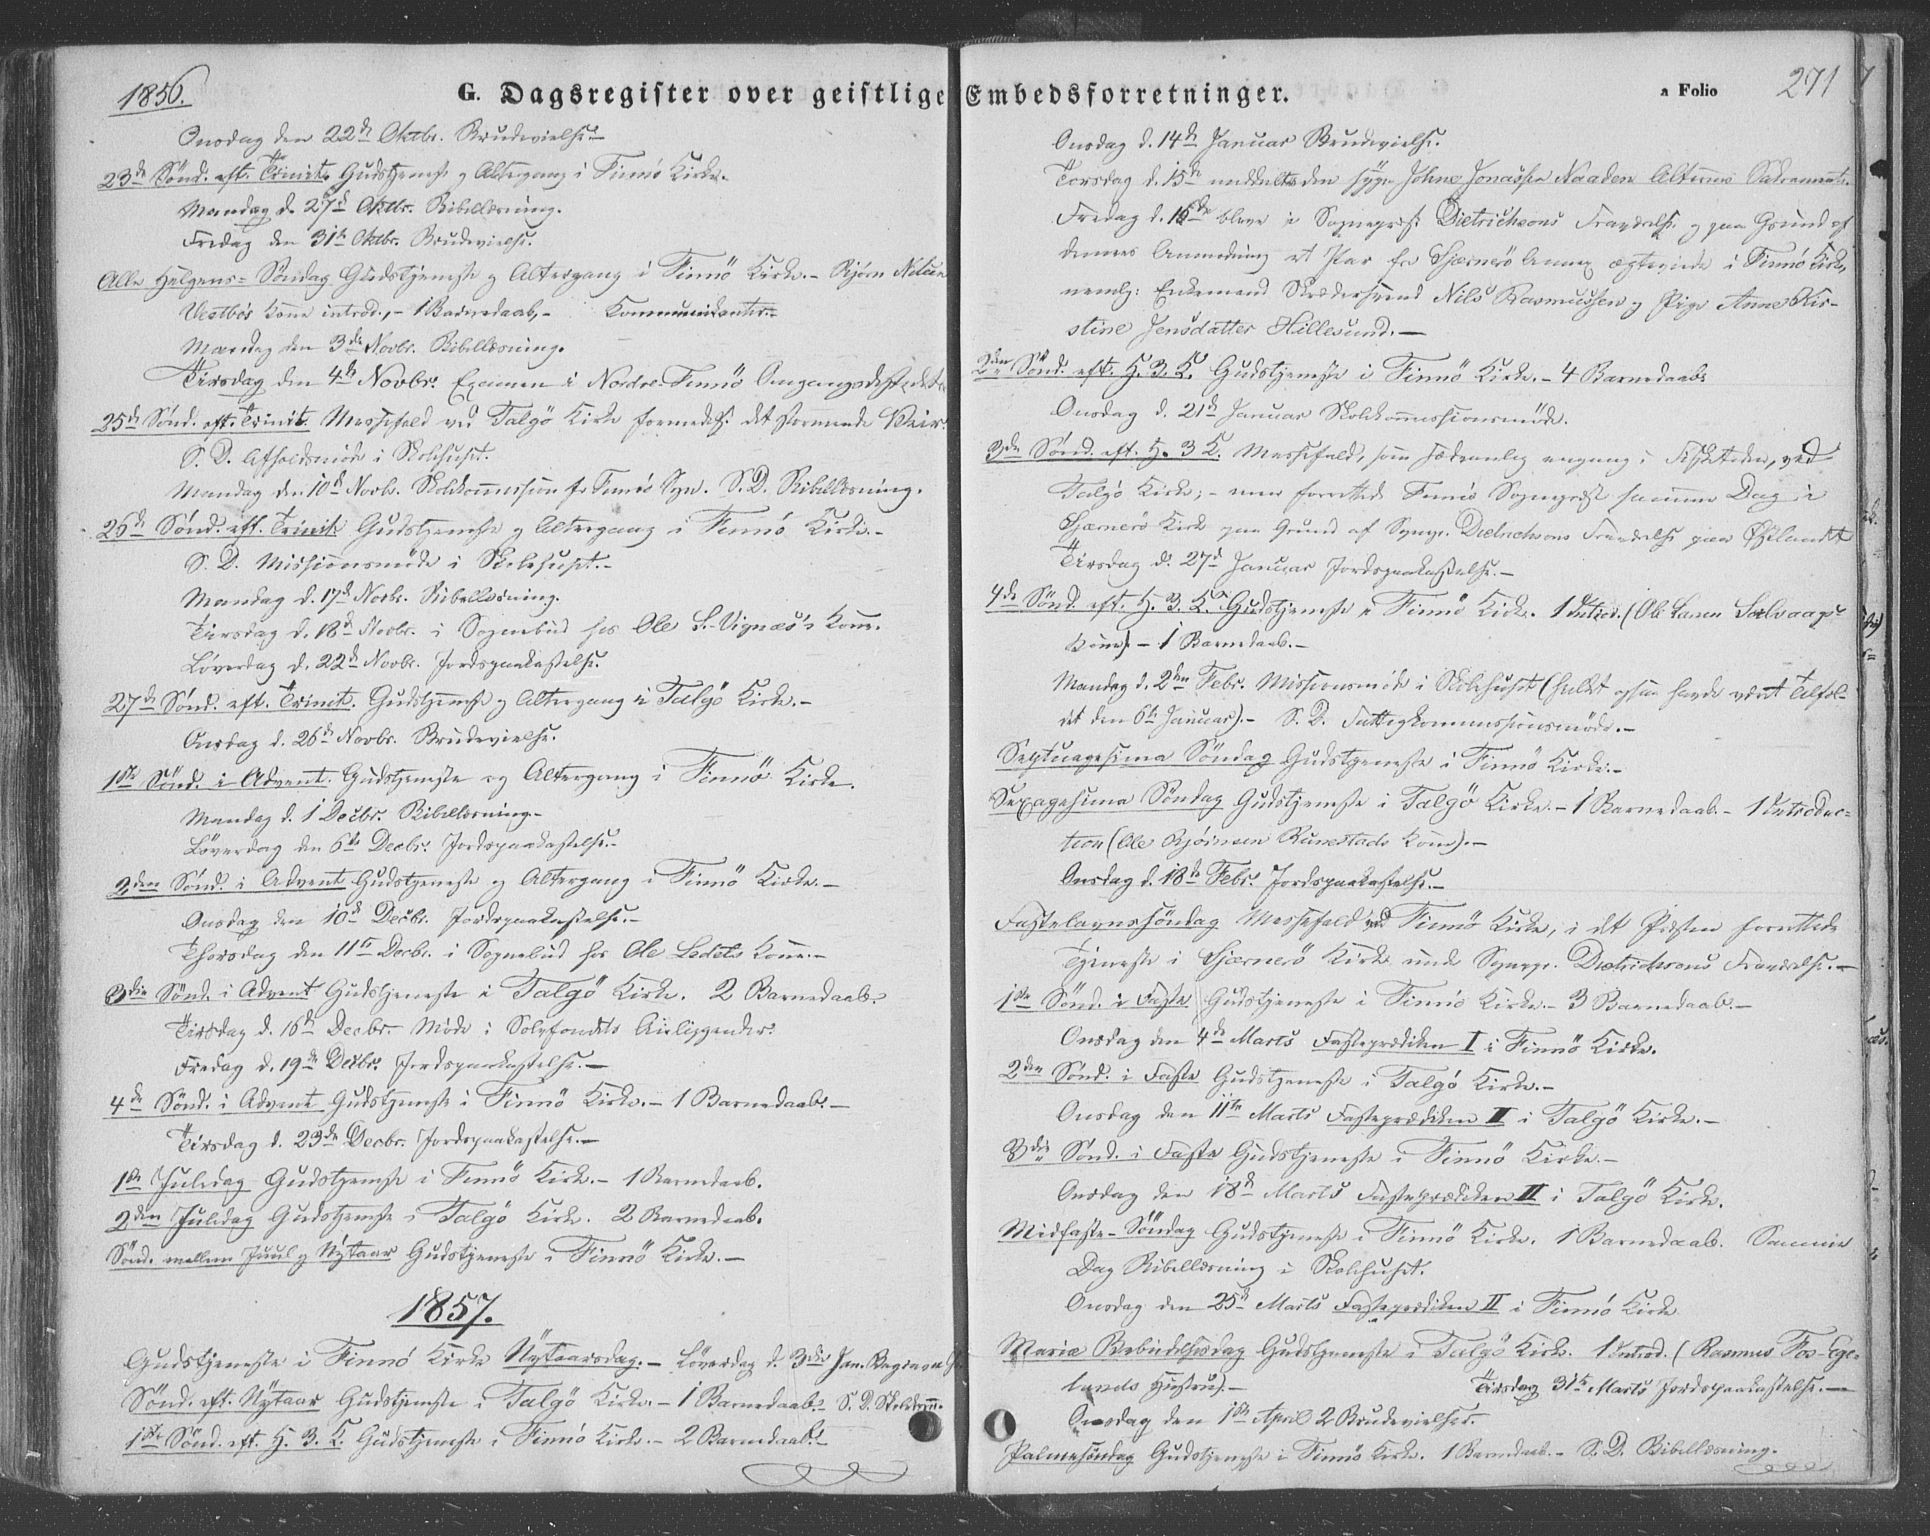 1856.
G. Dagsregister over geistlige Embedsforretninger.
a Folio 271
Onsdag den 22de Oktbr. Brudevielse.
23de Sönd. eft. Trinit. Gudstjeneste og Altergang i Finnö Kirke.
Mandag d. 27d Oktbr. Bibellæsning.
Fredag den 31te Oktbr. Brudevielse.
Alle Helgens-Söndag Gudstjeneste og Altergang i Finnö Kirke. - Bjørn Nilsen
Vestbös Kone introd., - 1 Barnedaab, - Kommunikanter. -
Mandag den 3die Novbr. Bibellæsning.
Tirsdag den 4de Novbr. Examen i Nordre-Finnö Omgangsdistrikt.
25de Sönd. eft. Trinit. Messefald ved Talgö Kirke formedelst det stormende Veir.
S. D. Afholdsmöde i Skolehuset.
Mandag den 10de Novbr. Skolekommission for Finnö Sgn. S. D. Bibellæsning.
26de Sönd. eft. Trinit. Gudstjeneste og Altergang i Finnö Kirke. -
S. D. Missionsmöde i Skolehuset. -
Mandag d. 17de Novbr. Bibellæsning.
Tirsdag d. 18de Novbr. i Sognebud hos Ole S. Vignæs's Kone.
Löverdag d. 22de Novbr. Jordspaakastelse.
27de Sönd. eft. Trinit. Gudstjeneste og Altergang i Talgö Kirke. -
Onsdag d. 26de Novbr. Brudevielse.
1ste Sönd. i Advent. Gudstjeneste og Altergang i Finnö Kirke.
Mandag d. 1 Decbr. Bibellæsning. -
Löverdag den 6te Decbr. Jordspaakastelse. -
2den Sönd. i Advent Gudstjeneste og Altergang i Finnö Kirke. -
Onsdag den 10de Decbr. Jordspaakastelse. -
Thorsdag den 11te Decbr. i Sognebud hos Ole Ladels Kone. -
3die Sönd. i Advent Gudstjeneste i Talgö Kirke. 2 Barnedaab.
Tirsdag d. 16de Decbr. Möde i Anliggender.
Fredag d. 19de Decbr. Jordspaakastelse. -
4de Sönd. i Advent Gudstjeneste i Finnö Kirke. - 1 Barnedaab. -
Tirsdag d. 23de Decbr. Jordspaakastelse. -
1ste Juledag Gudstjeneste i Finnö Kirke. - 1 Barnedaab.
2den Juledag Gudstjeneste i Talgö Kirke. 2 Barnedaab.
Sönd. mellem Juul og Nytaar Gudstjeneste i Finnö Kirke. -
1857.
Gudstjeneste i Finnö Kirke Nytaarsdag. - Löverdag d. 3die Jan.
Sönd. eft. Nytaar Gudstjeneste i Talgö Kirke. - 1 Barnedaab. - S. D.
1ste Sönd. eft. H. 3. K. Gudstjeneste i Finnö Kirke. - 2 Barnedaab. -
Onsdag d. 14de Januar Brudevielse.
Torsdag d. 15de meddeltes den syge Johne Jonassen Naaden Alterens Sakramente.
Fredag d. 16de bleve i Sognepræst Dietrichsons Fraværelse og paa Grund af
dennes Anmodning et Par fra Sjærnerö Annex ægteviede i Finnö Kirke,
nemlig: Enkemand Skrædersvend Nils Rasmussen og Pige Anne Kir-
stine Jensdatter Hillesund. -
2den Sönd. eft. H. 3. K. Gudstjeneste i Finnö Kirke. - 4 Barnedaab.
Onsdag d. 21de Januar Skolekommissionsmöde.
3die Sönd. eft. H. 3 K. Messefald, som sædvanlig engang i Fisketiden, ved
Talgö Kirke; - men forrettede Finnö Sognepræst samme Dag i
Sjærnerö Kirke paa Grund af Sognpr. Dietrichsons Fraværelse paa Östlandet
Tirsdag d. 27de Januar Jordspaakastelse. -
4de Sönd. eft. H. 3. K. Gudstjeneste i Finnö Kirke. 1 Introd. (Ole Larsen
Kone) - 1 Barnedaab. -
Mandag d. 2den Febr. Missionsmöde i Skolehuset (hvilket ogsaa havde været Tilfæl-
det den 6te Januar). - S. D. Fattigkommissionsmöde. -
Septuagesima Söndag Gudstjeneste i Finnö Kirke. -
Sexagesima Söndag Gudstjeneste i Talgö Kirke. - 1 Barnedaab. - 1 Introduc-
tion (Ole Bjørnsen Runestads Kone). -
Onsdag d. 18de Febr. Jordspaakastelse. -
Fastelavnssöndag Messefald ved Finnö Kirke, i det Præsten forrettede
Tjeneste i Sjærnerö Kirke under Sognpr. Dietrichsons Fraværelse. -
1ste Sönd. i Faste Gudstjeneste i Finnö Kirke. - 3 Barnedaab. -
Onsdag den 4de Marts Fasteprædiken I i Finnö Kirke.
2den Sönd. i Faste Gudstjeneste i Talgö Kirke. -
Onsdag den 11te Marts Fasteprædiken II i Talgö Kirke. -
3die Sönd. i Faste Gudstjeneste i Finnö Kirke. -
Onsdag den 18de Marts Fasteprædiken II i Talgö Kirke.
Midfaste-Söndag Gudstjeneste i Finnö Kirke. 1 Barnedaab. Samme
Dag Bibellæsning i Skolehuset.
Onsdag den 25de Marts Fasteprædiken II i Finnö Kirke
Mariæ Bebudelsesdag Gudstjeneste i Talgö Kirke. 1 Introd. (Rasmus Fos-Ege-
lands Hustru). - Tirsdag 31te Marts Jordspaakastelse. -
Onsdag den 1ste April 2 Brudevielser.
Palmesöndag Gudstjeneste i Finnö Kirke. 1 Barnedaab. - S. D. Bibellæsning.